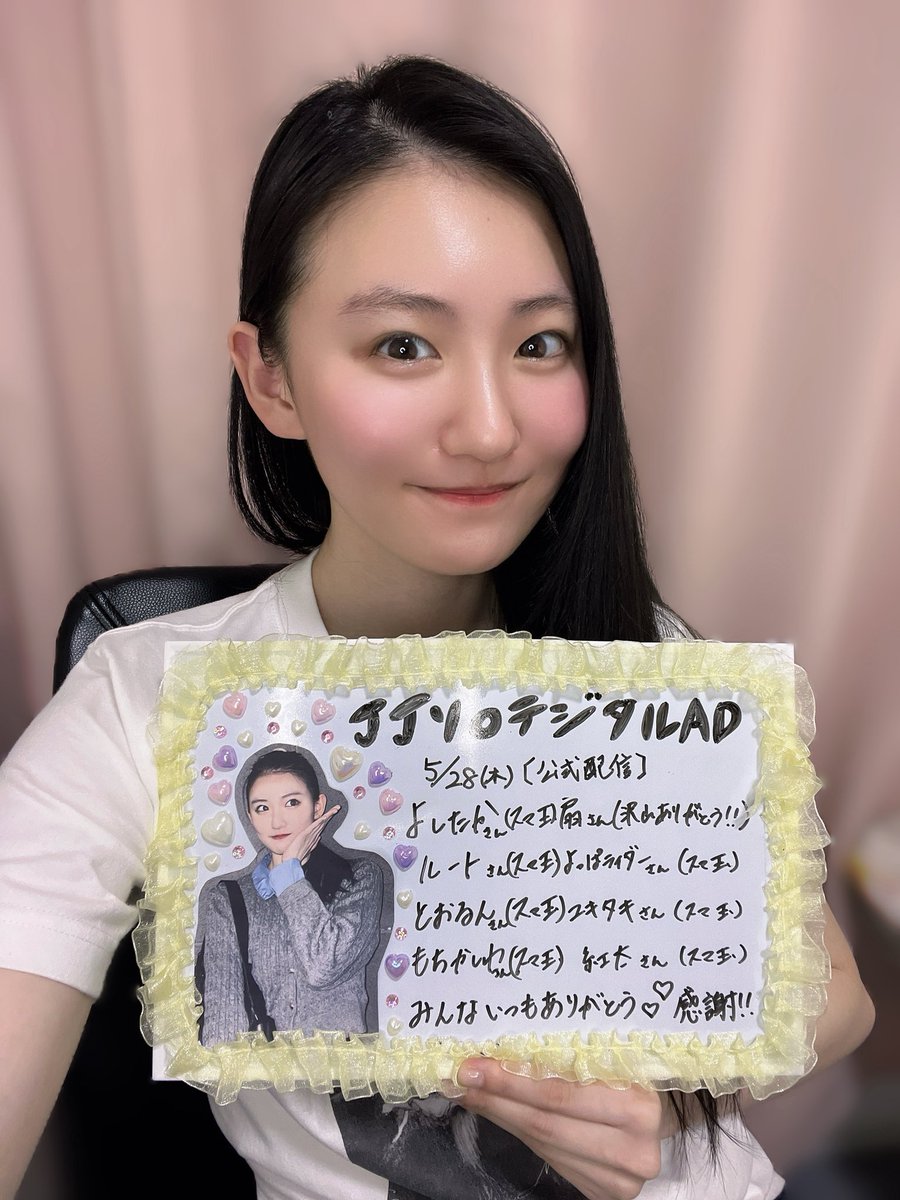 JJソロデジタルAD
5/28(木)[公式配信]
よしたかさん(スマ玉)扇さん(沢山ありがとう!!)
ルートさん(スマ玉)よっぱライダーさん(スマ玉)
とおるんさん(スマ玉)ユキタキさん(スマ玉)
もちかしわさん(スマ玉) 紅太さん(スマ玉)
みんないつもありがとう♡♡感謝!!